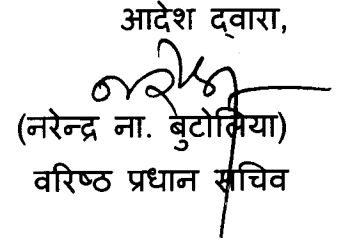 आदेश द्वारा,
नरेन्द्र
(नरेन्द्र ना. बुटोलिया)
वरिष्ठ प्रधान सचिव